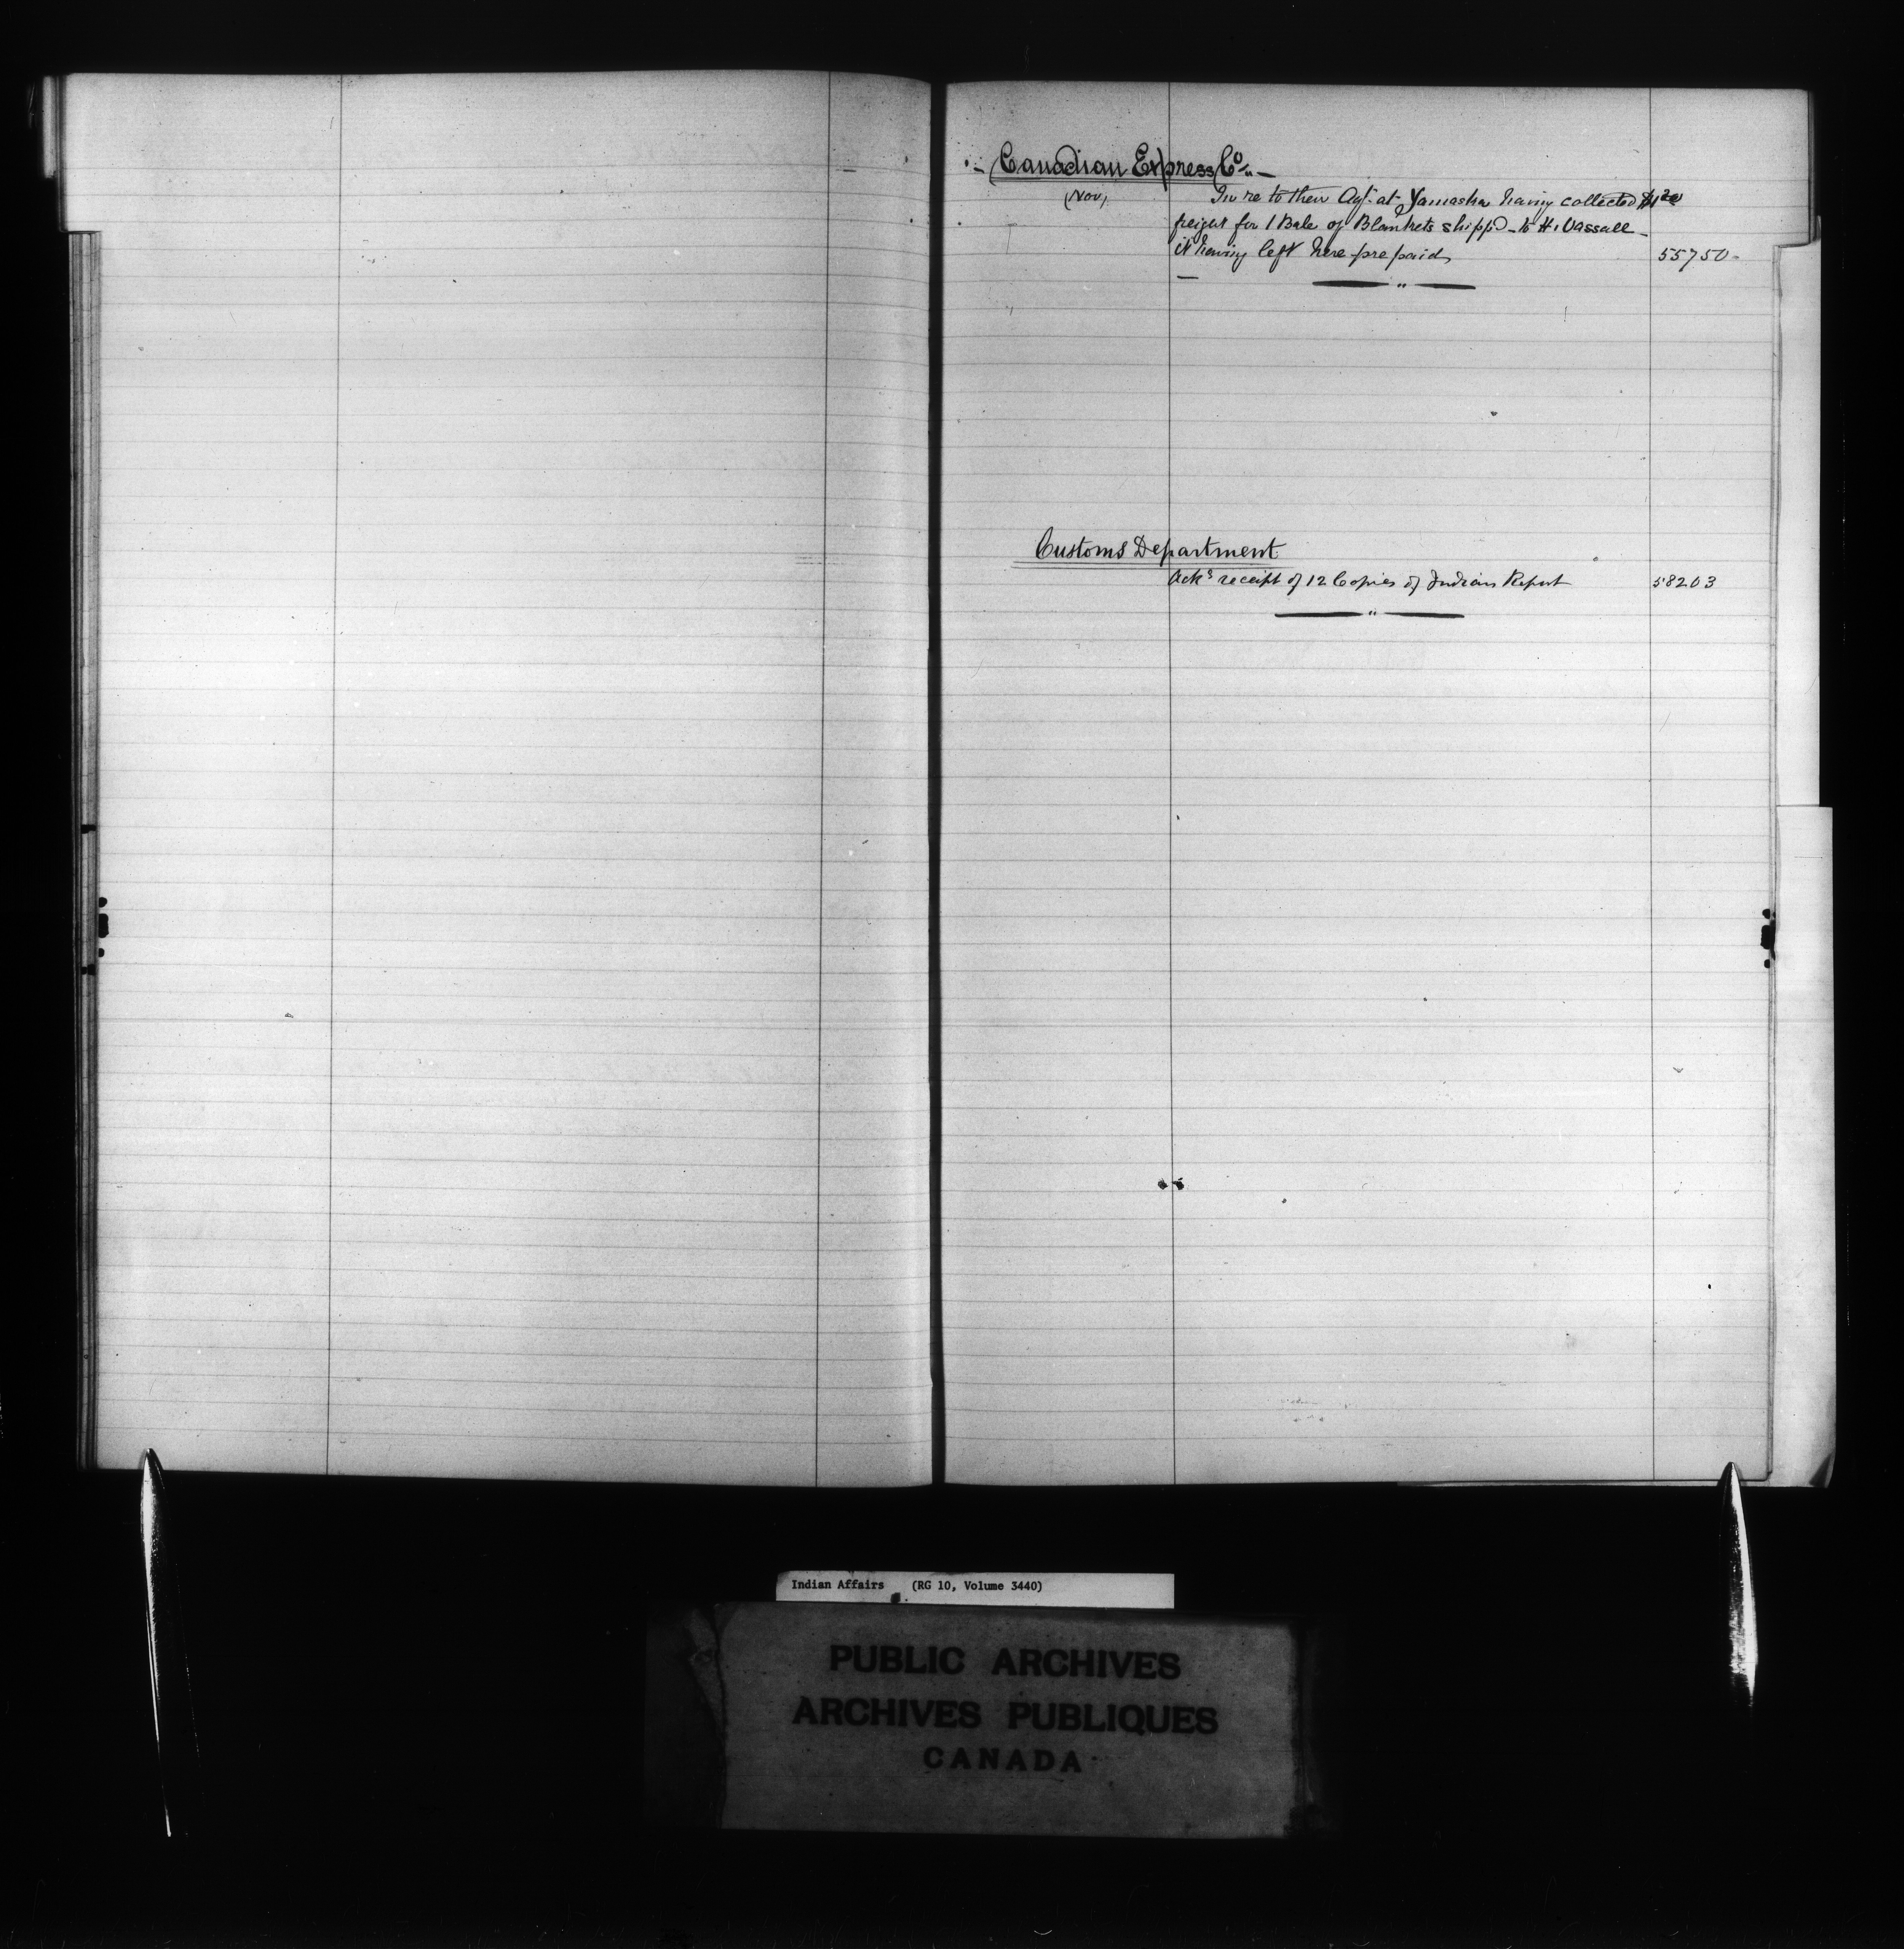 Canadian Express Co
(Nov)
In re to their Agt. at Yamaska having collected $1.20
freight for 1 Bale of Blankets shipp'd to H. Vassall
it having left here prepaid, 55750
Customs Department
Acks receipt of 12 Copies of Indian Report 58203
Indian Affairs (RG 10, Volume 3440)
PUBLIC ARCHIVES
ARCHIVES PUBLIQUES
CANADA